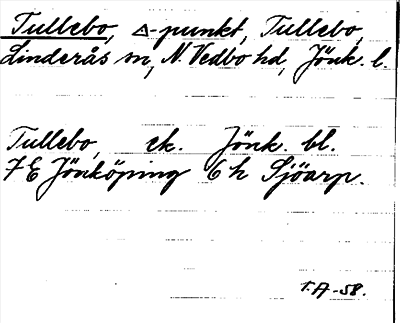 Tullebo, △-punkt, Tullebo,
Linderås sn, N. Vedbo hd, Jönk. l.
Tullebo, ek. Jönk. bl.
7E Jönköping 6h Sjöarp.
T.A-58.